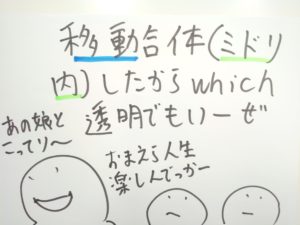 移動合体(ミドリ
内)したからwhich
透明でもいーぜ
あの娘と
こってり〜
おまえら人生
楽しんでっかー